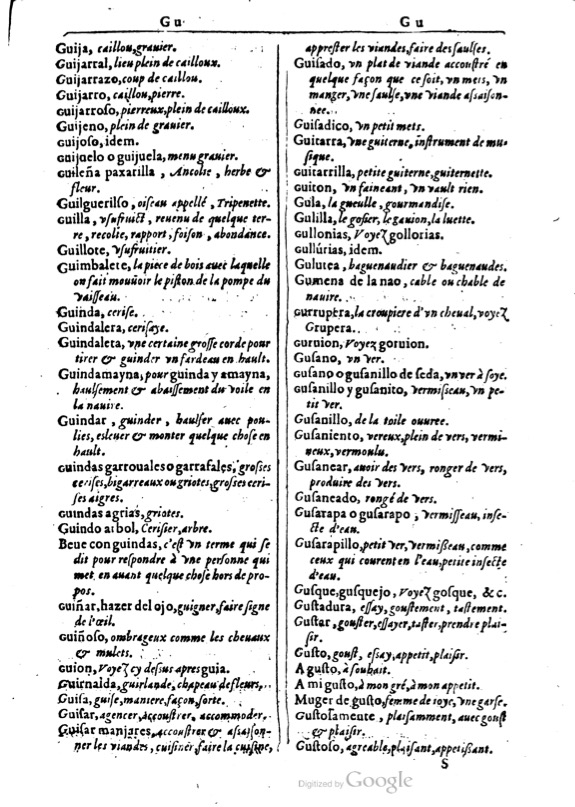 Gu
Guija, caillou, grauier.
Guijarral, lieu plein de cailloux.
Guijarrazo, coup de caillou.
Guijarro, caillou, pierre.
Guijarroso, pierreux, plein de cailloux.
Guijeno, plein de grauier.
guijoso, idem.
guijuelo o guijuela, menu grauier.
guileña paxarilla, Ancolie, herbe &
fleur.
Guilguerillo, oiseau appellé, Tripenette.
Guilla, vsufruict, reuenu de quelque ter-
re, recolie, rapport, foison, abondance.
Guillote, vsufruitier.
Guimbalete, la piece de bois auec laquelle
on fait mouüoir le piston de la pompe du
vaisseau.
Guinda, cerise.
Guindalera, cerisaye.
Guindaleta, vne certaine grosse corde pour
tirer & guinder vn fardeau en hault.
Guindamayna, pour guinda y amayna,
haulsement & abaissement du voile en
la nauire.
Guindar, guinder, haulser auec pou-
lies, esleuer & monter quelque chose en
hault.
guindas garrouales o garrafales, grosses
cerises, bigarreaux ou griotes, grosses ceri-
ses aigres.
guindas agrias, griotes.
Guindo arbol, Cerisier, arbre.
Beue con guindas, c'est vn terme qui se
dit pour respondre à vne personne qui
met en auant quelque chose hors de pro-
pos.
guiñar, hazer del ojo, guigner, faire signe
de l'œil.
guiñoso, ombrageux comme les cheuaux
& mulets.
guion, Voyez cy dessus apres guia.
Guirnalda, guirlande, chapeau de fleurs.
Guisa, guise, maniere, façon, sorte.
Guisar, agencer, accoustrer, accommoder.
Guisar manjares, accoustrer & assaison-
ner les viandes, cuisiner, faire la cuisine,
Gu
apprester les viandes, faire des saulses.
Guisado, vn plat de viande accoustré en
quelque façon que ce soit, vn mets, vn
manger, vne saulse, vne viande assaison-
nee.
Guisadico, vn petit mets.
Guitarra, vne guiterne, instrument de mu-
sique.
guitarrilla, petite guiterne, guiternette.
guiton, vn faineant, vn vault rien.
Gula, la gueulle, gourmandise.
Gulilla, le gosier, le gauion, la luette.
gullonias, Voyez gollorias.
gullúrias, idem.
Gulutea, baguenaudier & baguenaudes.
Gumena de la nao, cable ou chable de
nauire.
gurrupera, la croupiere d'vn cheual, voyez
Grupera.
guruion, Voyez goruion.
Gusano, vn ver.
gusano o gusanillo de seda, vn ver à soye.
gusanillo y gusanito, vermisseau, vn pe-
tit ver.
Gusanillo, de la toile ouuree.
Gusaniento, vereux, plein de vers, vermi-
neux, vermoulu.
Gusanear, auoir des vers, ronger de vers,
produire des vers.
Gusaneado, rongé de vers.
Gusarapa o gusarapo, vermisseau, inse-
cte d'eau.
Gusarapillo, petit ver, vermisseau, comme
ceux qui courent en l'eau, petite insecte
d'eau.
Gusque, gusquejo, Voyez gosque, & c.
Gustadura, essay, goustement, tastement.
Gustar, gouster, essayer, taster, prendre plai-
sir.
Gusto, goust, essay, appetit, plaisir.
A gusto, à souhait.
A mi gusto, à mon gré, à mon appetit.
Muger de gusto, femme de ioye, vne garse.
Gustosamente, plaisamment, auec goust
& plaisir.
Gustoso, agreable, plaisant, appetissant.
S
Digitized by Google